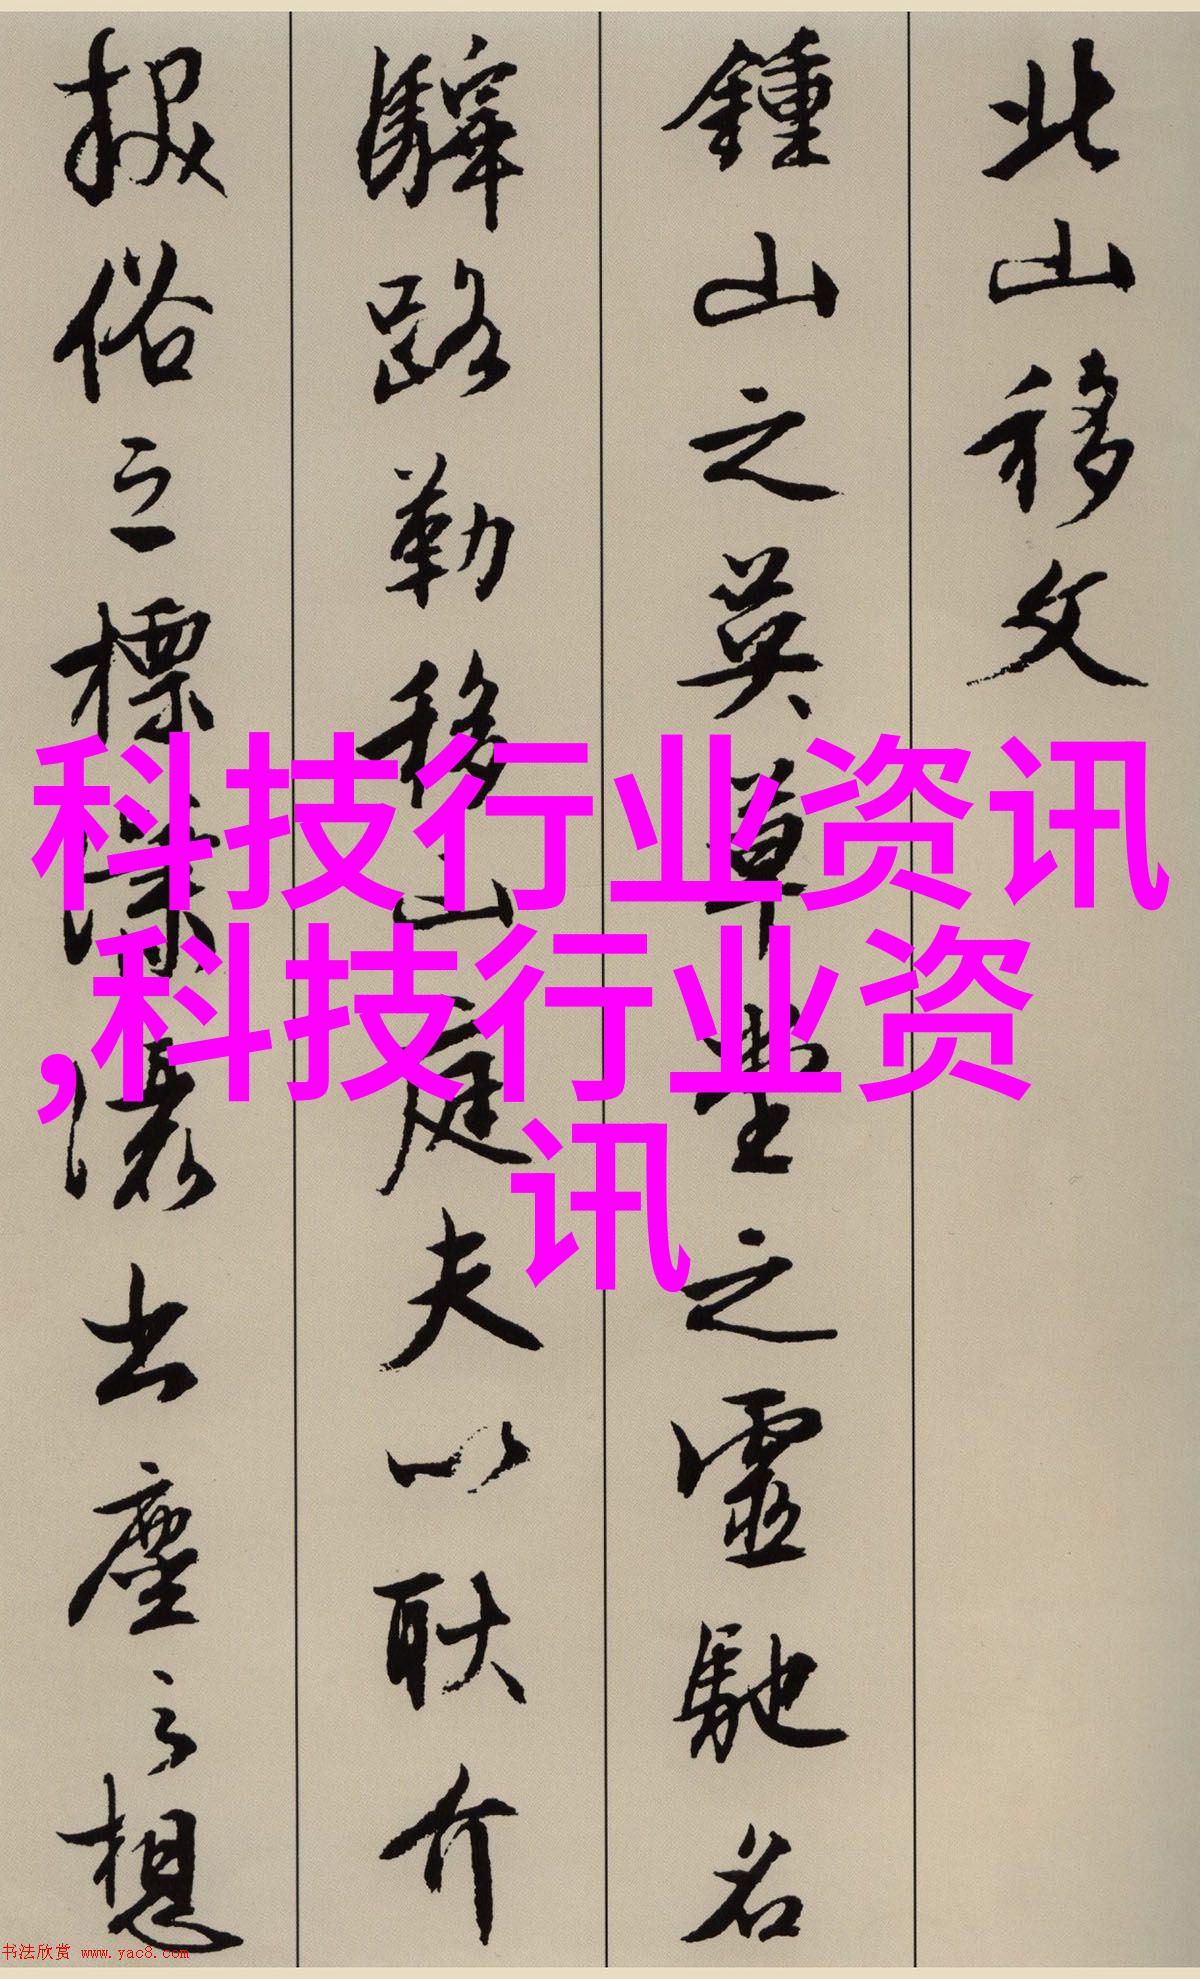 北山移文
鍾山之英草堂之靈馳名
驛路勒移山庭夫以耿介
拔俗之標瀟灑出塵之想
科技行业资讯
,科技行业资
讯
书法欣赏 www.yac8.com